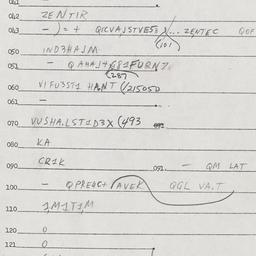 041
042 ZENTIR
043 - )= + QICVAJSTVE58 X... ZENTEC QOF
(101
050 IND3HAJM
051 - QAHAJ+G81FURN7
(287
060 VIFU3ST1 HANT (/215050
061 -
070 VUSHA.LST1D3X (493
080 KA
090 CR1K 091 - QM LAT
100 - QPREHC+ AVEK QGL VA.T
110 1M1T1M
120 0
121 0